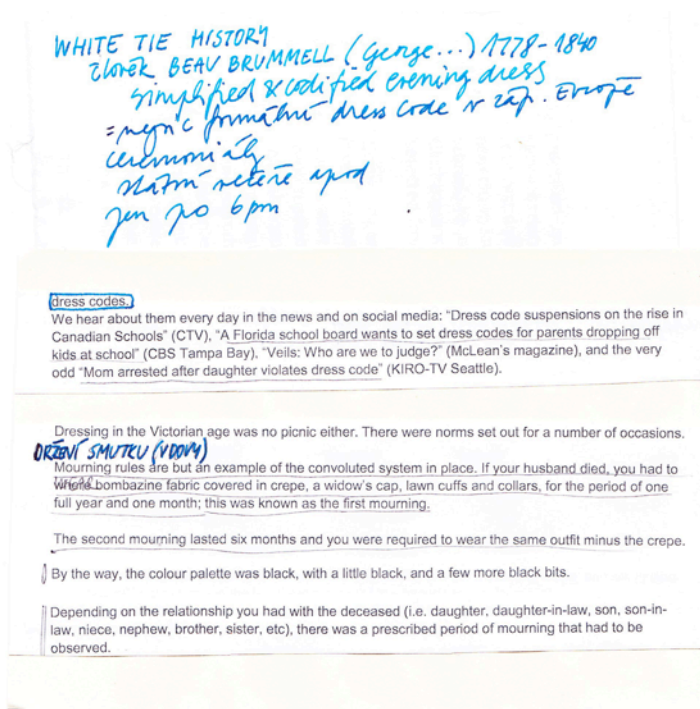 WHITE TIE HISTORY
člověk BEAU BRUMMELL (George...) 1778-1840
simplified & codified evening dress
= nejvíc formální dress code v záp. Evropě
ceremoniály
státní večeře apod
jen po 6pm
dress codes.
We hear about them every day in the news and on social media: “Dress code suspensions on the rise in
Canadian Schools” (CTV), “A Florida school board wants to set dress codes for parents dropping off
kids at school” (CBS Tampa Bay), “Veils: Who are we to judge?” (McLean’s magazine), and the very
odd “Mom arrested after daughter violates dress code” (KIRO-TV Seattle).
Dressing in the Victorian age was no picnic either. There were norms set out for a number of occasions.
DRŽENÍ SMUTKU (VDOVY)
Mourning rules are but an example of the convoluted system in place. If your husband died, you had to
bombazine fabric covered in crepe, a widow’s cap, lawn cuffs and collars, for the period of one
full year and one month; this was known as the first mourning.
The second mourning lasted six months and you were required to wear the same outfit minus the crepe.
By the way, the colour palette was black, with a little black, and a few more black bits.
Depending on the relationship you had with the deceased (i.e. daughter, daughter-in-law, son, son-in-
law, niece, nephew, brother, sister, etc), there was a prescribed period of mourning that had to be
observed.